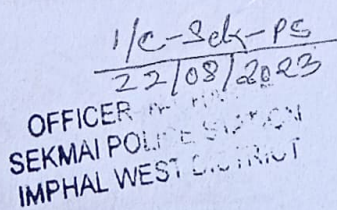 I/C-Sek-PS
22/08/2023
OFFICER
SEKMAI POLICE STATION
IMPHAL WEST DISTRICT